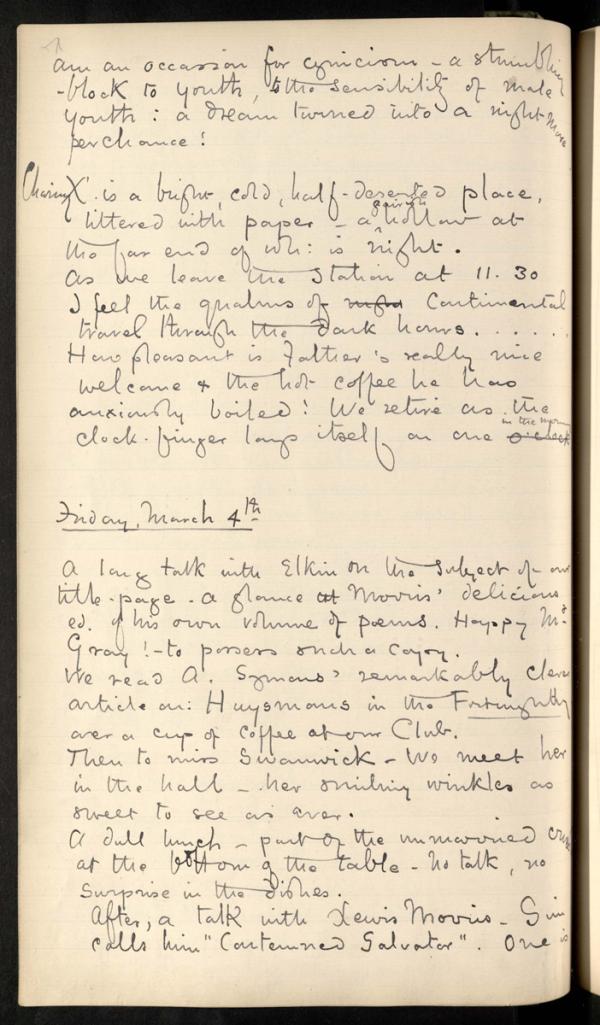 am an occasion for cynicism – a stumbling
-block to youth, to the sensibility of male
youth: a dream turned into a night-mare
perchance!
Charing X. is a bright, cold, half-deserted place,
littered with paper – a hollow at
the far end of wh: is night.
As we leave the Station at 11.30
I feel the qualms of night Continental
travel through the dark hours. . . . . .
How pleasant is Father's really nice
welcome & the hot coffee he has
anxiously boiled! We retire as the
clock-finger lays itself on one o'clock in the morn
Friday, March 4th
A long talk with Elkin on the subject of our
title-page – a glance at Morris' delicious
ed. of his own volume of poems. Happy Mr.
Gray! – to possess such a copy.
We read A. Symons' remarkably clever
article on: Huysmans in the Fortnightly
over a cup of coffee at our Club.
Then to miss Swanwick – We meet her
in the hall – her smiling winkles as
sweet to see as ever.
A dull lunch – part of the unmarried
at the bottom of the table – no talk, no
surprise in the dishes.
After, a talk with Lewis Morris – Sim
calls him "Contemned Salvator". One is